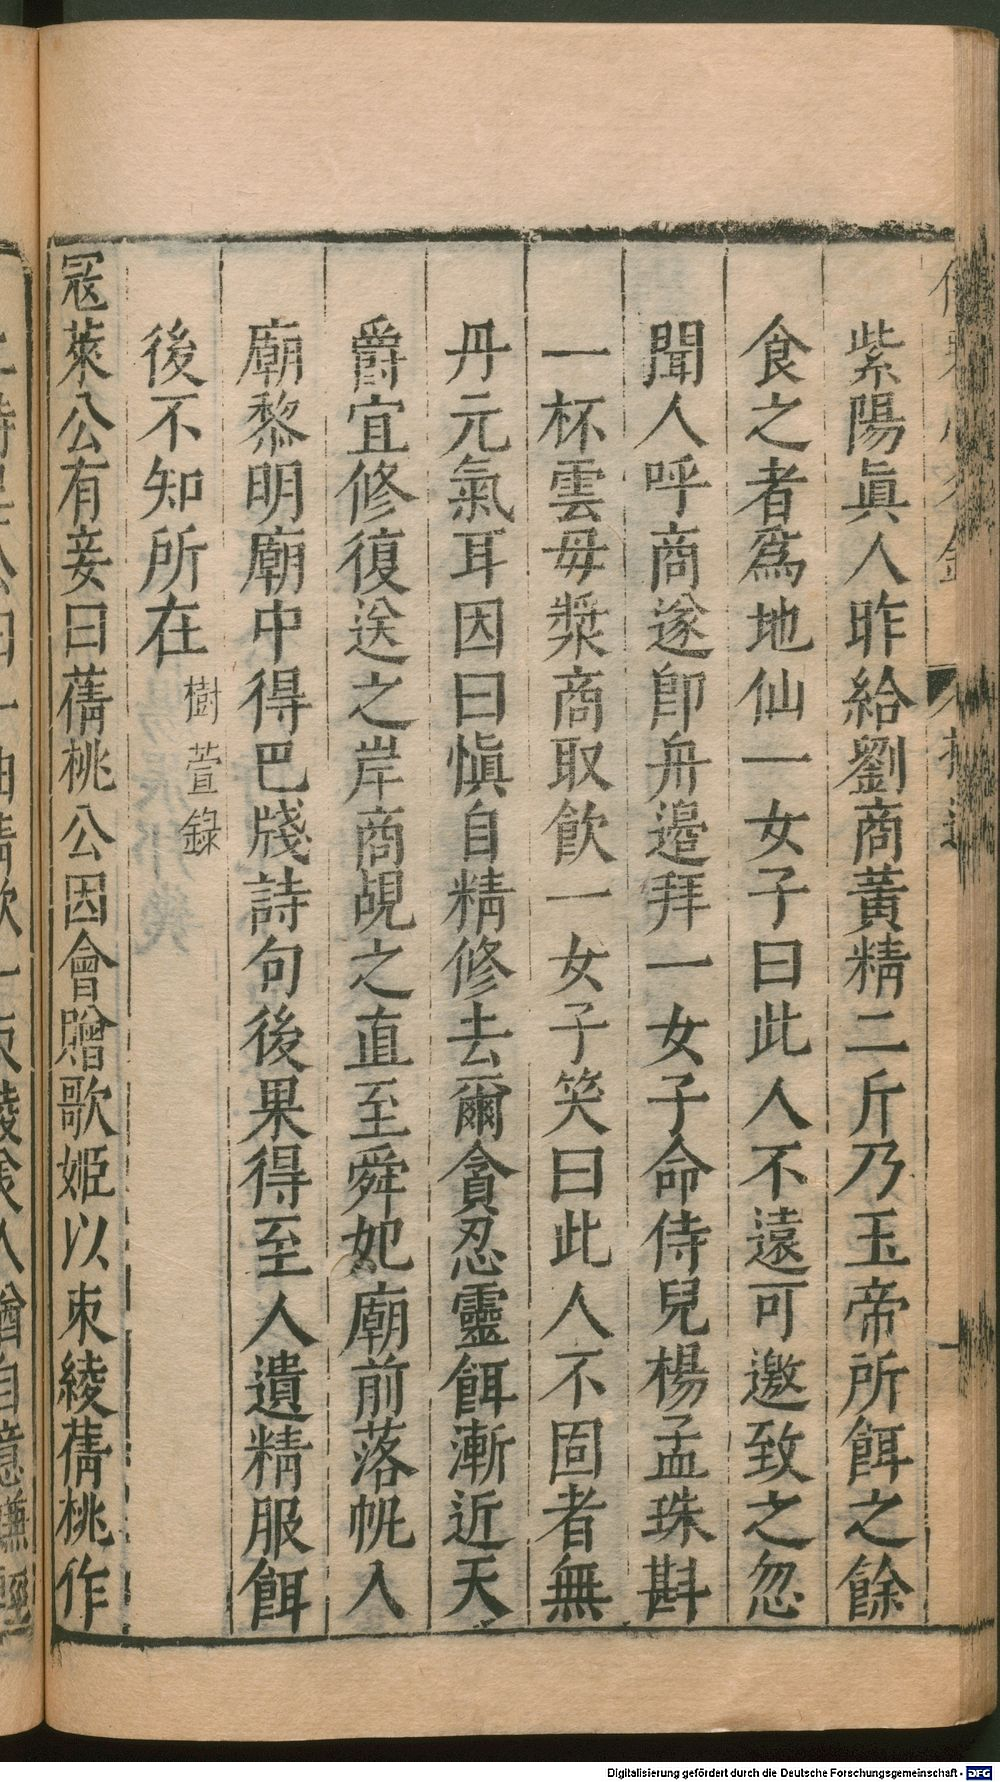 紫陽眞人昨給劉商黃精二斤乃玉帝所餌之餘
食之者爲地仙一女子曰此人不遠可邀致之忽
聞人呼商遂卽舟邉拜一女子命侍兒楊孟珠斟
一杯雲母漿商取飲一女子笑曰此人不固者無
丹元氣耳因曰愼自精修去爾貪忍靈餌漸近天
爵宜修復送之岸商覘之直至舜妃廟前落帆入
廟黎明廟中得巴牋詩句後果得至人遺精服餌
後不知所在
樹萱錄
冦萊公有妾曰蒨桃公因會贈歌姬以束綾蒨桃作
Digitalisierung gefördert durch die Deutsche Forschungsgemeinschaft - DFG